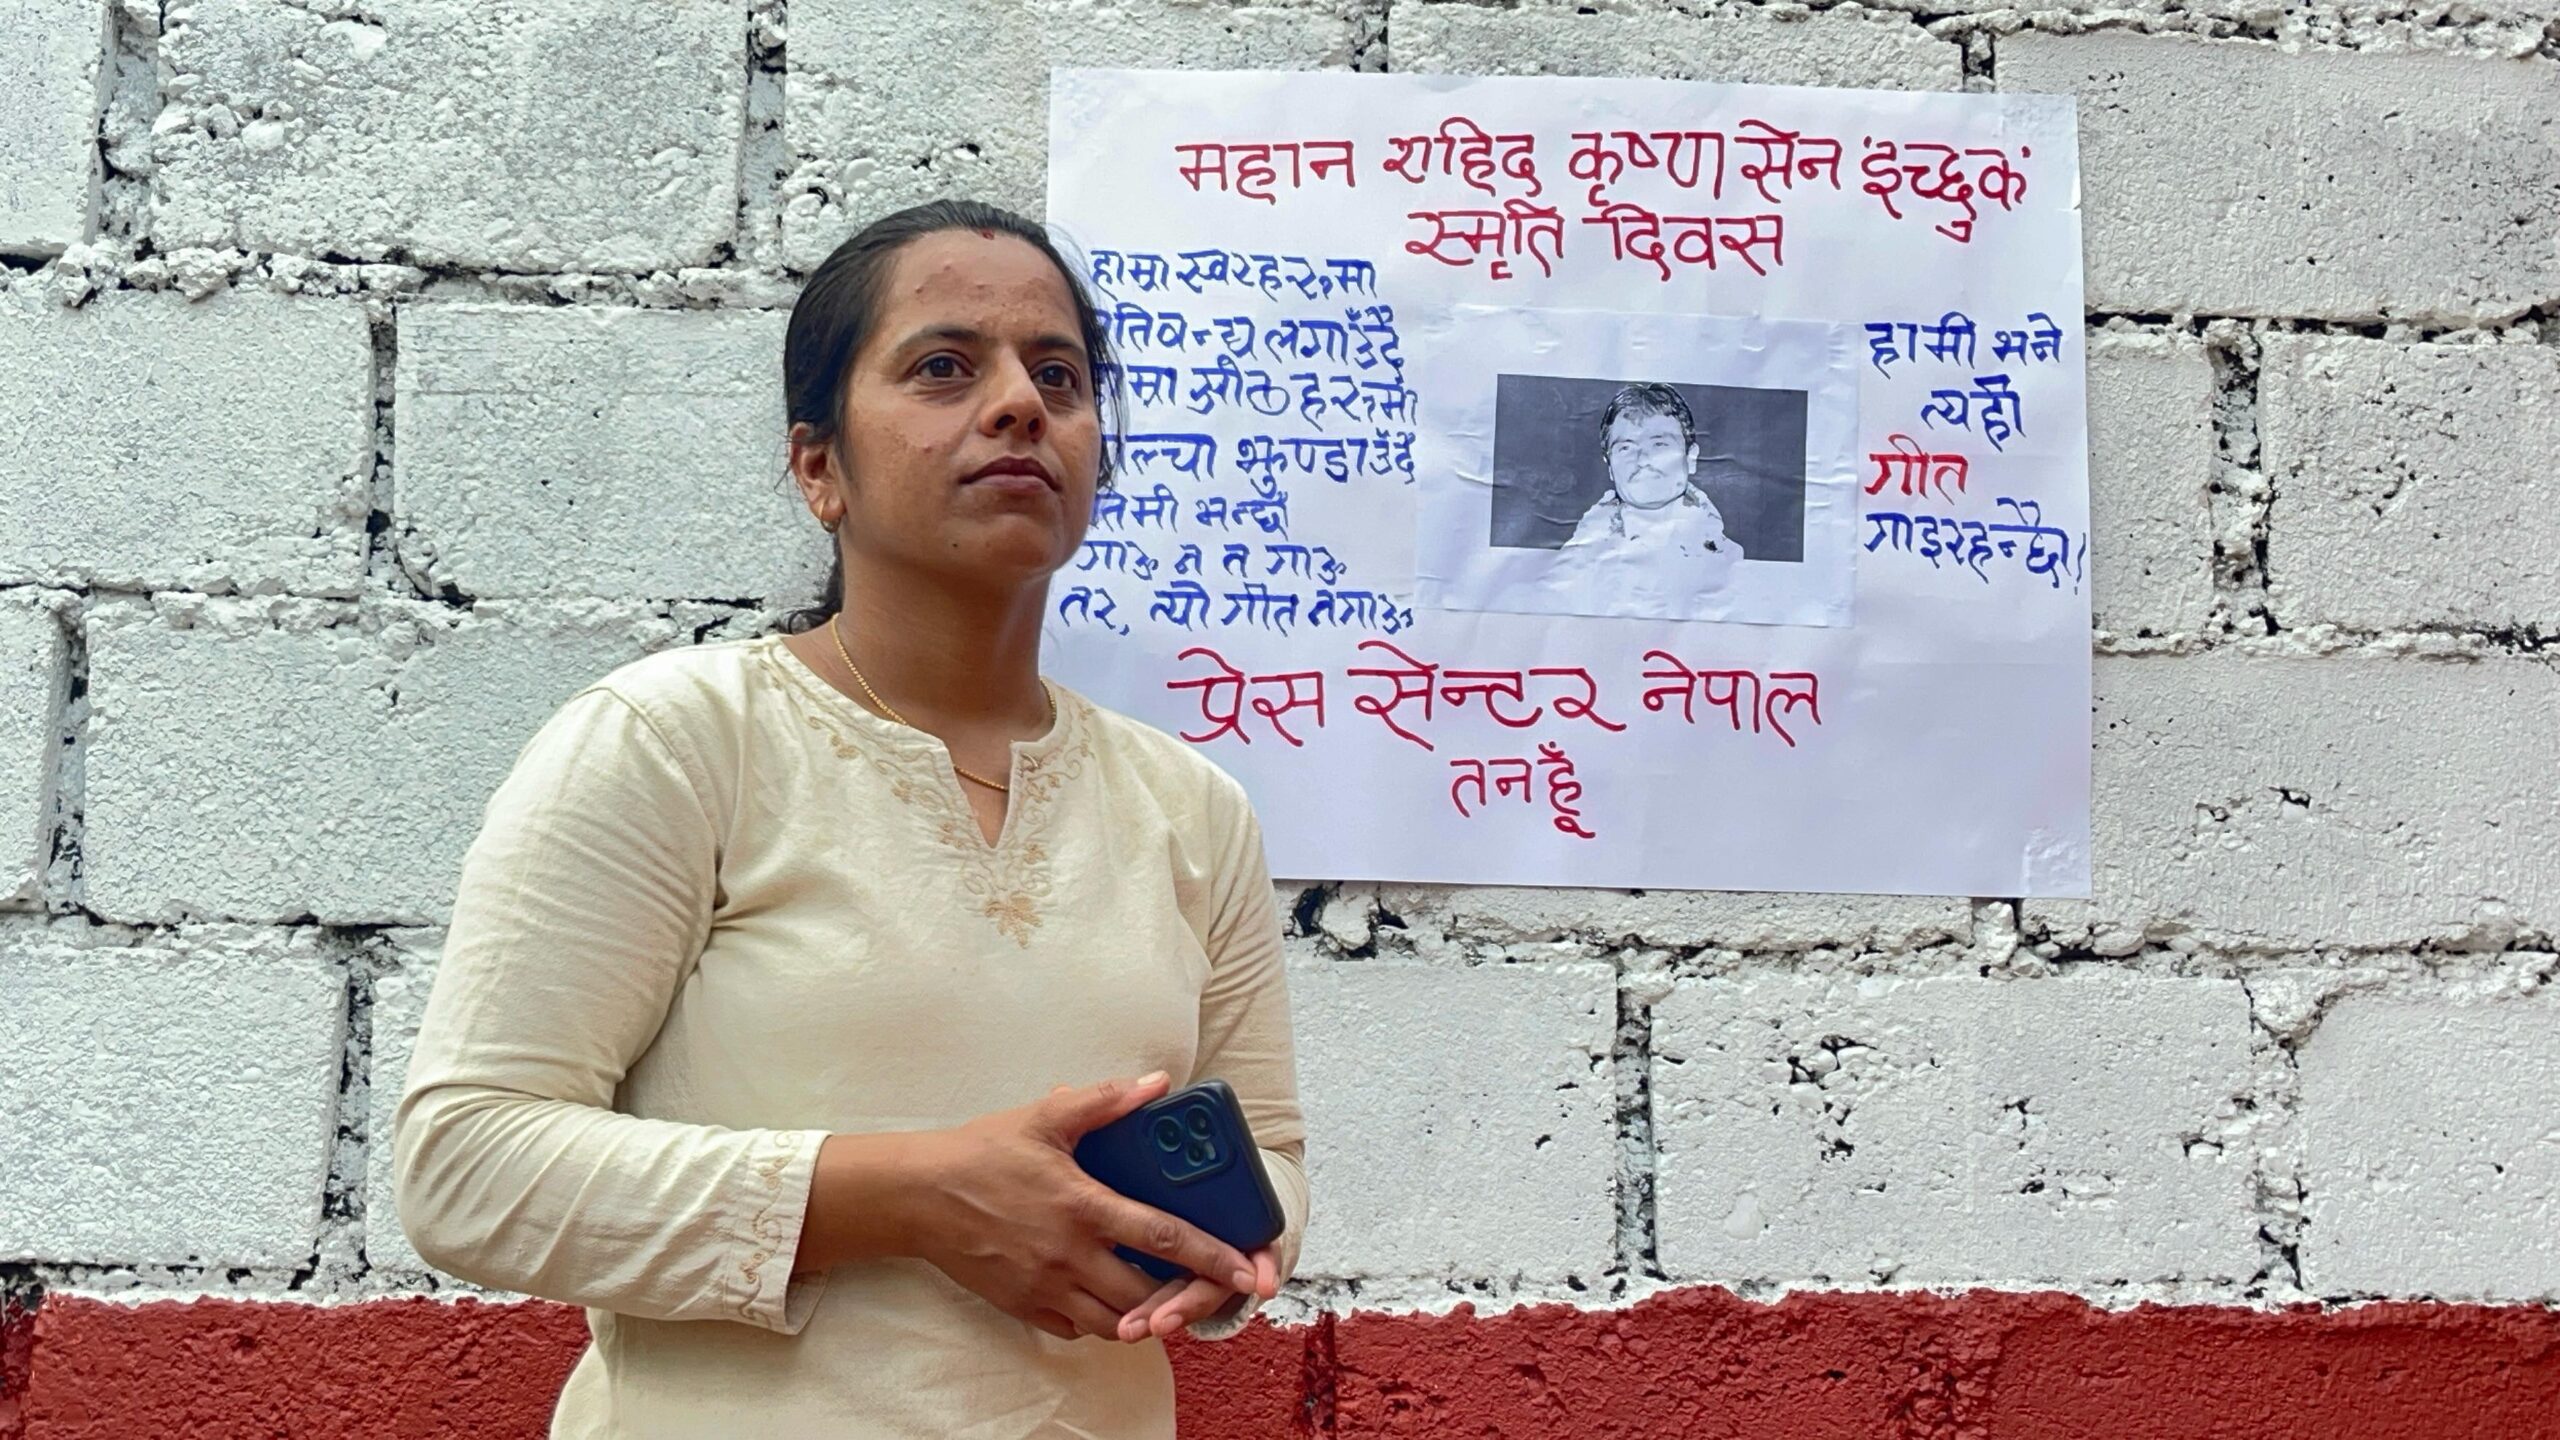 महान शहिद कृष्ण सेन 'इच्छुक'
स्मृति दिवस
हाम्रा स्वरहरूमा
लगाउँदै
ओठहरूमा
झुण्डाउँदै
तिमी भन्छौ
गाऊ न त गाऊ
तर, त्यो गीत नगाऊ
हामी भने
त्यही
गीत
गाइरहन्छौं!
प्रेस सेन्टर नेपाल
तनहूँ